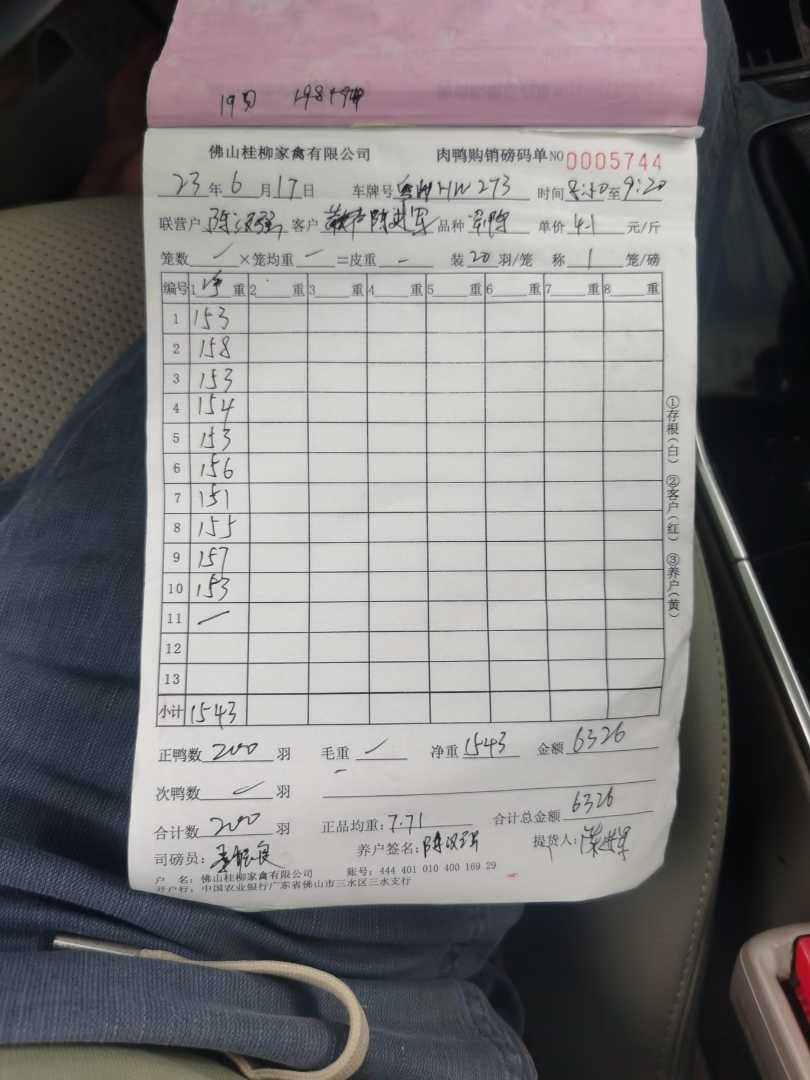 19
佛山桂柳家禽有限公司 肉鸭购销磅码单 NO 0005744
23年6月17日 车牌号 HW273 时间 8:50至9:20
联营户 陈汉强 客户 陈进军 品种 单价 4.1 元/斤
笼数 / ×笼均重 - =皮重 - 装 20 羽/笼 称 1 笼/磅
编号 1净重 2 重 3 重 4 重 5 重 6 重 7 重 8 重
1 153
2 158
3 153
4 154
5 153
6 156
7 151
8 155
9 157
10 153
11 /
12
13
小计 1543
正鸭数 200 羽 毛重 / 净重 1543 金额 6326
次鸭数 / 羽 -
合计数 200 羽 正品均重:7.71 合计总金额 6326
司磅员: 养户签名:陈汉强 提货人:
户 名:佛山桂柳家禽有限公司 账号:444 401 010 400 169 29
开户行:中国农业银行广东省佛山市三水区三水支行
①存根(白) ②客户(红) ③养户(黄)